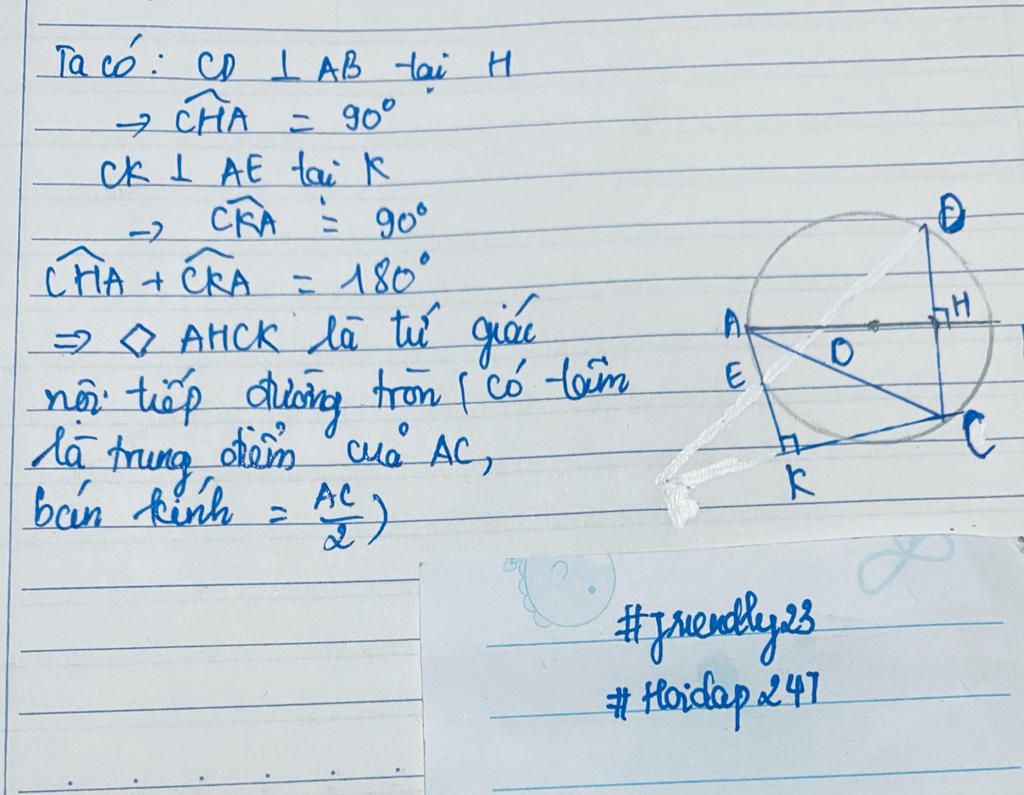 Ta có: CD ⊥ AB tại H
→ \widehat{CHA} = 90°
CK ⊥ AE tại K
→ \widehat{CKA} = 90°
\widehat{CHA} + \widehat{CKA} = 180°
⇒ ◇ AHCK là tứ giác
nội tiếp đường tròn ( có tâm
là trung điểm của AC,
bán kính = \frac{AC}{2} )
D
H
A
O
E
C
K
#friendly23
#Hoidap247